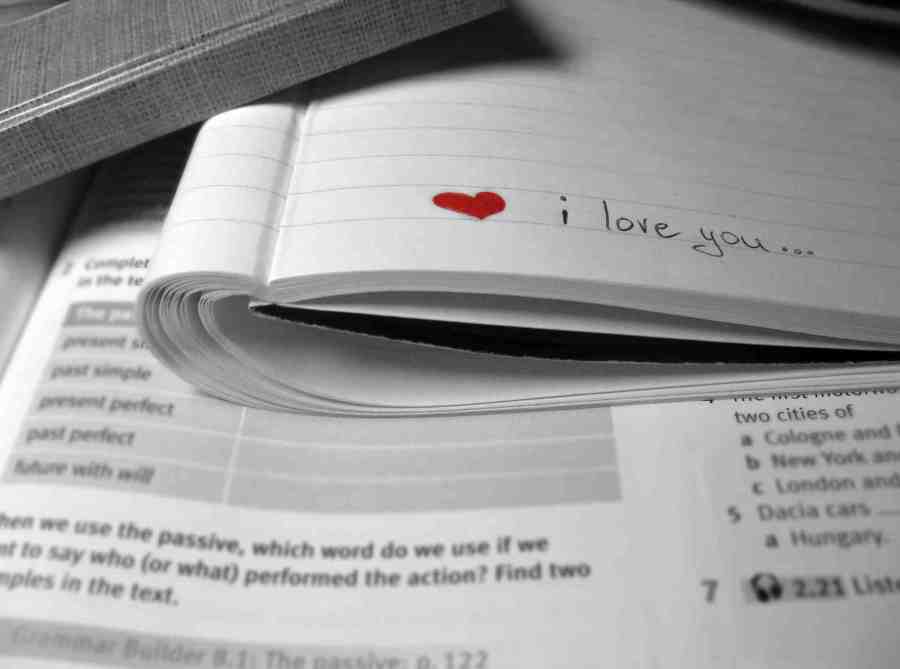 i love you...
2 Complet
in the te
The pa
present si
past simple
present perfect
past perfect
future with will
hen we use the passive, which word do we use if we
nt to say who (or what) performed the action? Find two
mples in the text.
Grammar Builder 8.1: The passive: p. 122
two cities of
a Cologne and
b New York an
c London and
5 Dacia cars
a Hungary.
7 2.21 Liste